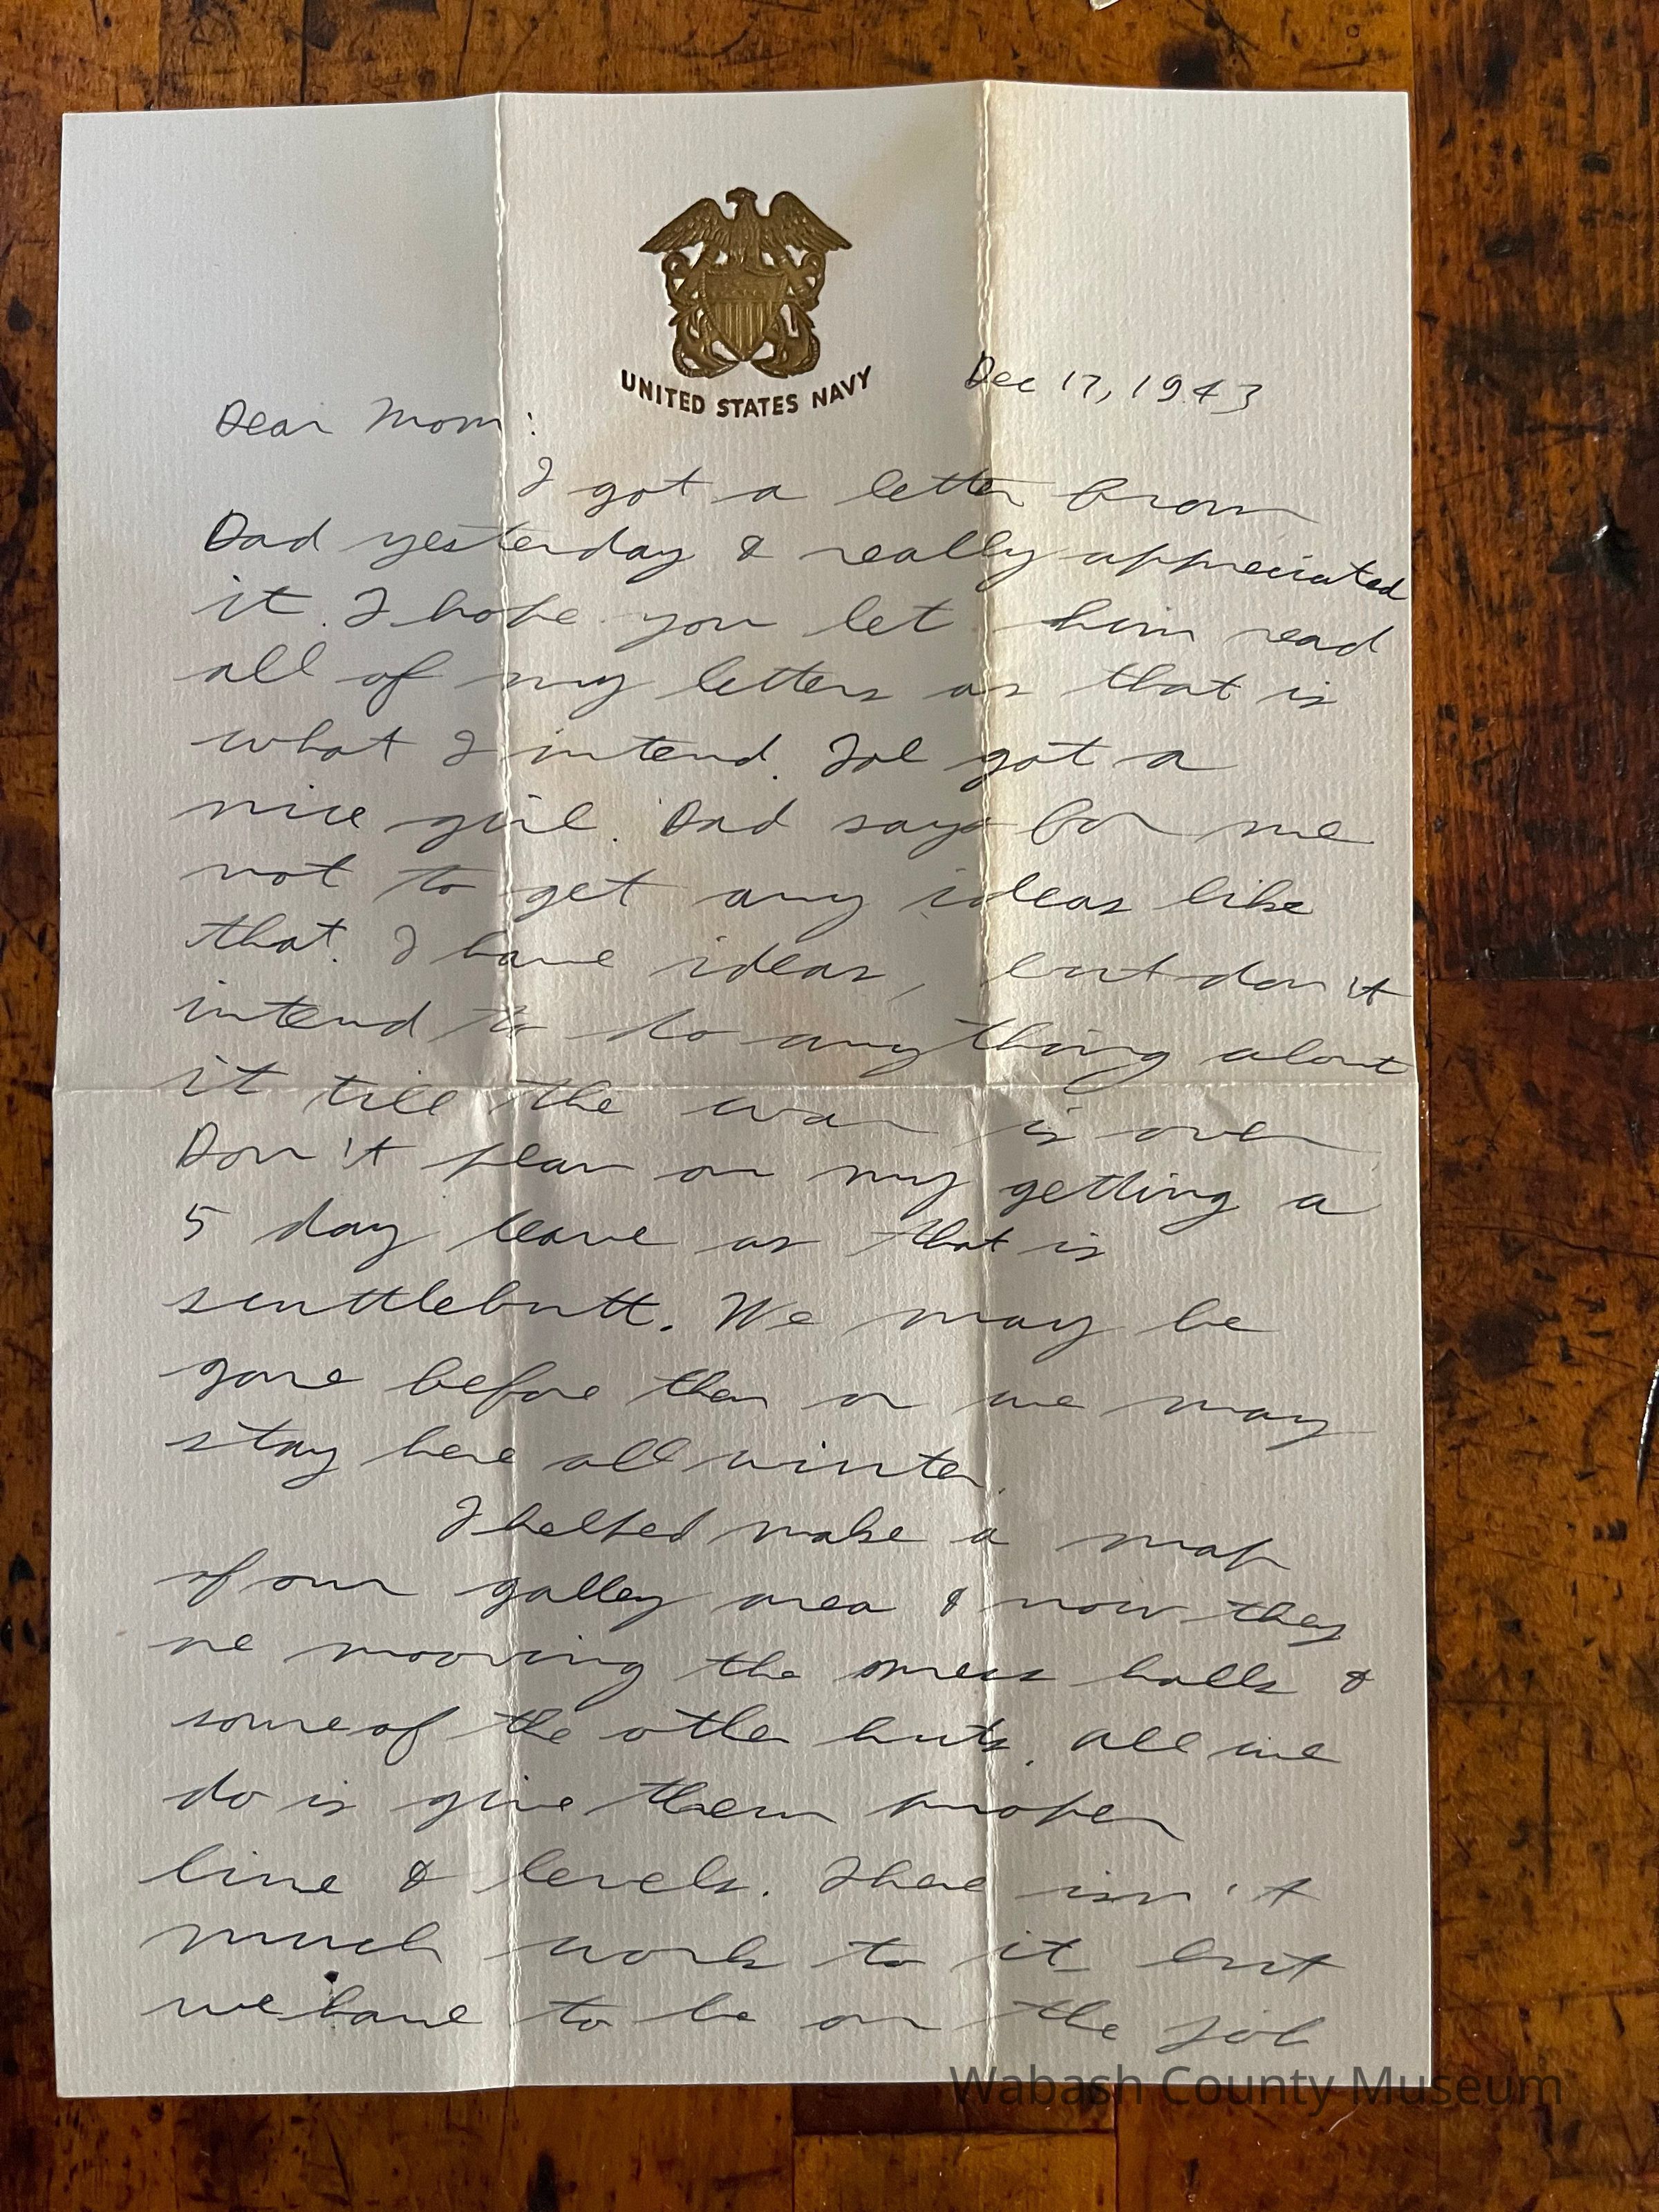 UNITED STATES NAVY
Dec 17, 1943
Dear Mom:
I got a letter from
Dad yesterday & really appreciated
it. I hope you let him read
all of my letters as that is
what I intend. got a
nice girl. Dad says for me
not to get any ideas like
that. I have ideas, but don't
intend to do anything about
it till the war is over
Don't plan on my getting a
5 day leave as that is
scuttlebutt. We may be
gone before then or we may
stay here all winter.
I helped make a map
of our galley area & now they
re mooving the mess halls &
some of the other huts. All we
do is give them proper
line & levels. There isn't
much work to it but
we have to be on the job
Wabash County Museum